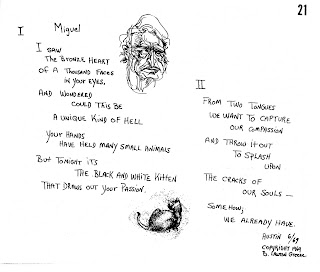 21
I
Miguel
I SAW
THE BRONZE HEART
OF A THOUSAND FACES
IN YOUR EYES,
AND WONDERED
COULD THIS BE
A UNIQUE KIND OF HELL
YOUR HANDS
HAVE HELD MANY SMALL ANIMALS
BUT TONIGHT IT'S
THE BLACK AND WHITE KITTEN
THAT DRAWS OUT YOUR PASSION.
II
FROM TWO TONGUES
WE WANT TO CAPTURE
OUR COMPASSION
AND THROW IT OUT
TO SPLASH
UPON
THE CRACKS OF
OUR SOULS —
SOMEHOW,
WE ALREADY HAVE.
AUSTIN 6/69
COPYRIGHT 1969